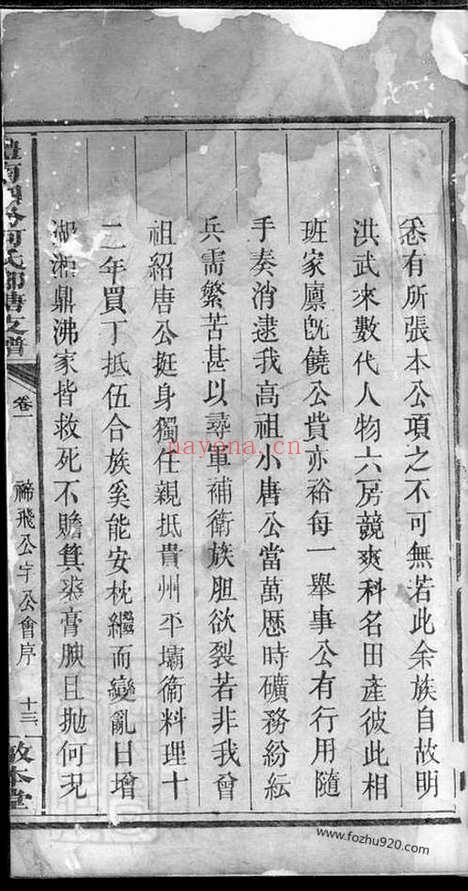 悉有所張本公項之不可無若此余族自故明
洪武來數代人物六房競爽科名田產彼此相
班家廩既饒公貲亦裕每一舉事公有行用隨
手奏消逮我高祖小唐公當萬歷時礦務紛紜
兵需繁苦甚以尋軍補衛族胆欲裂若非我曾
祖紹唐公挺身獨任親抵貴州平壩衛料理十
二年買丁抵伍合族奚能安枕繼而變亂日增
湖湘鼎沸家皆救死不贍箕裘膏腴且拋何況
何氏 支譜
卷一
禘飛公字公會序
十三
敦本堂
nayona.cn
www.fozhu920.com